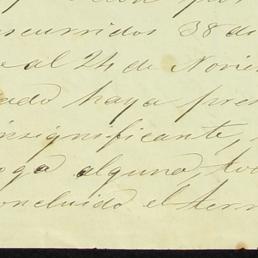 scurridos 38 di
al 24 de Novie
ado haya pres
insignificante,
oga alguna, to
concluido el term